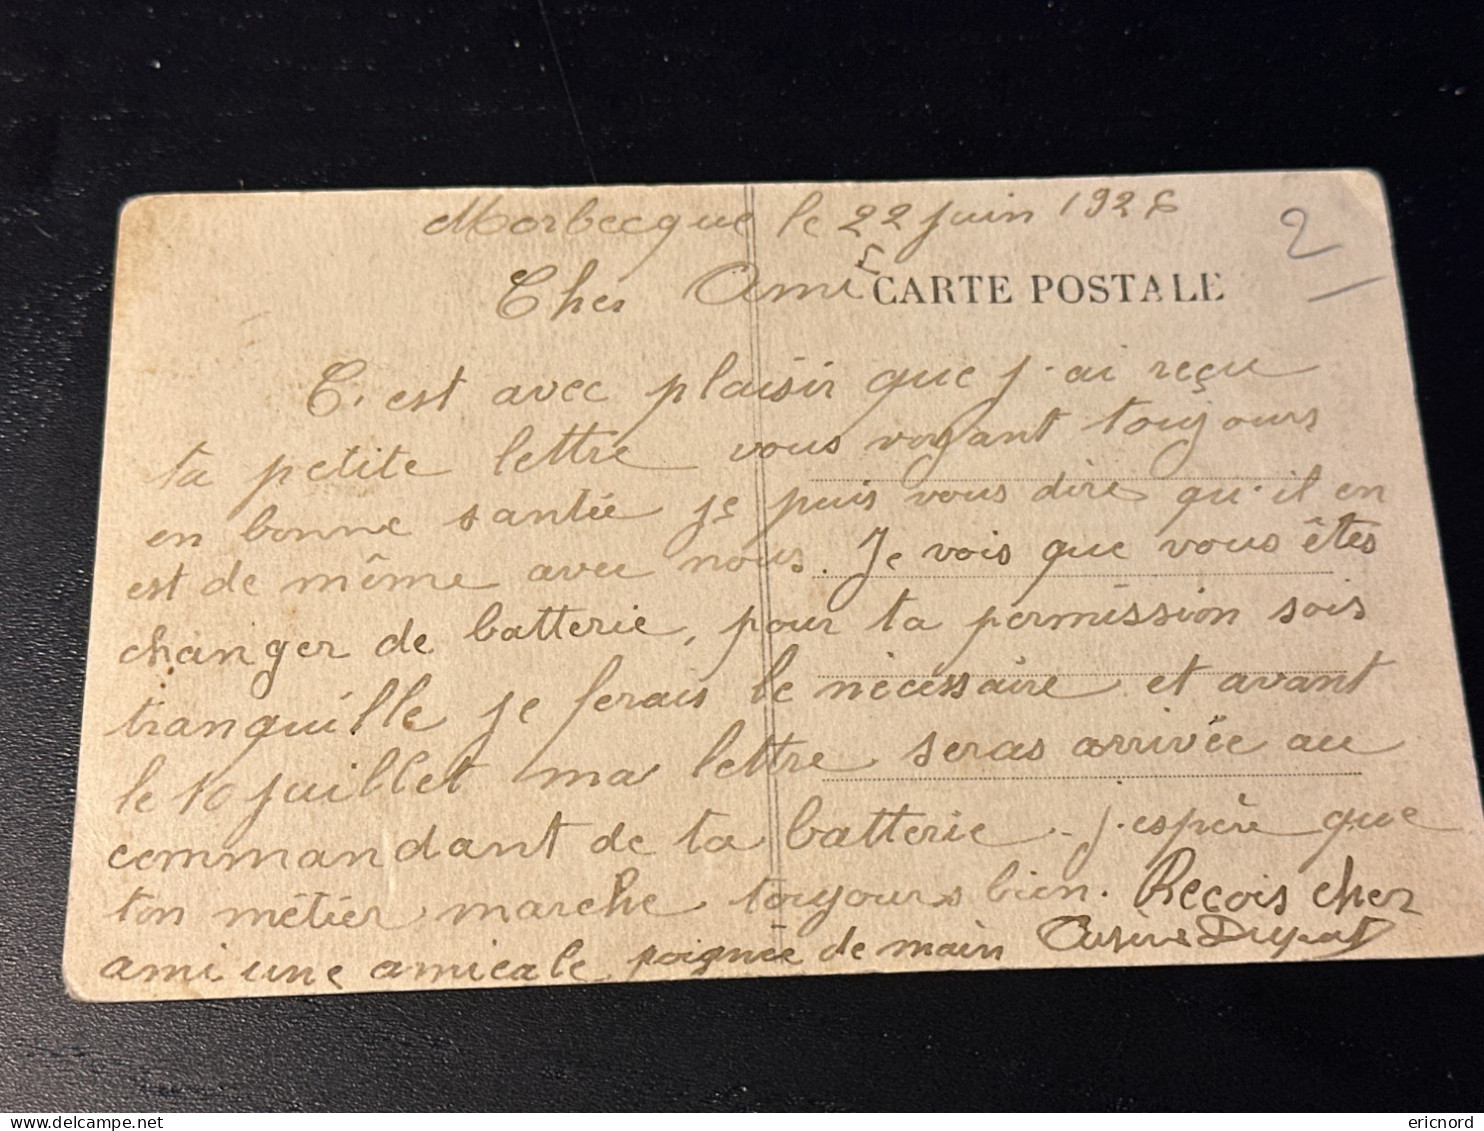 Morbecque le 22 juin 192
2
Cher Ami
CARTE POSTALE
C'est avec plaisir que j'ai reçu
ta petite lettre vous voyant toujours
en bonne santée je puis vous dire qu'il en
est de même avec nous. Je vois que vous êtes
changer de batterie, pour ta permission sois
tranquille je ferais le nécessaire et avant
le 10 juillet ma lettre seras arrivée au
commandant de ta batterie. j'espère que
ton métier marche toujours bien. Reçois cher
ami une amicale poignée de main
ericnord